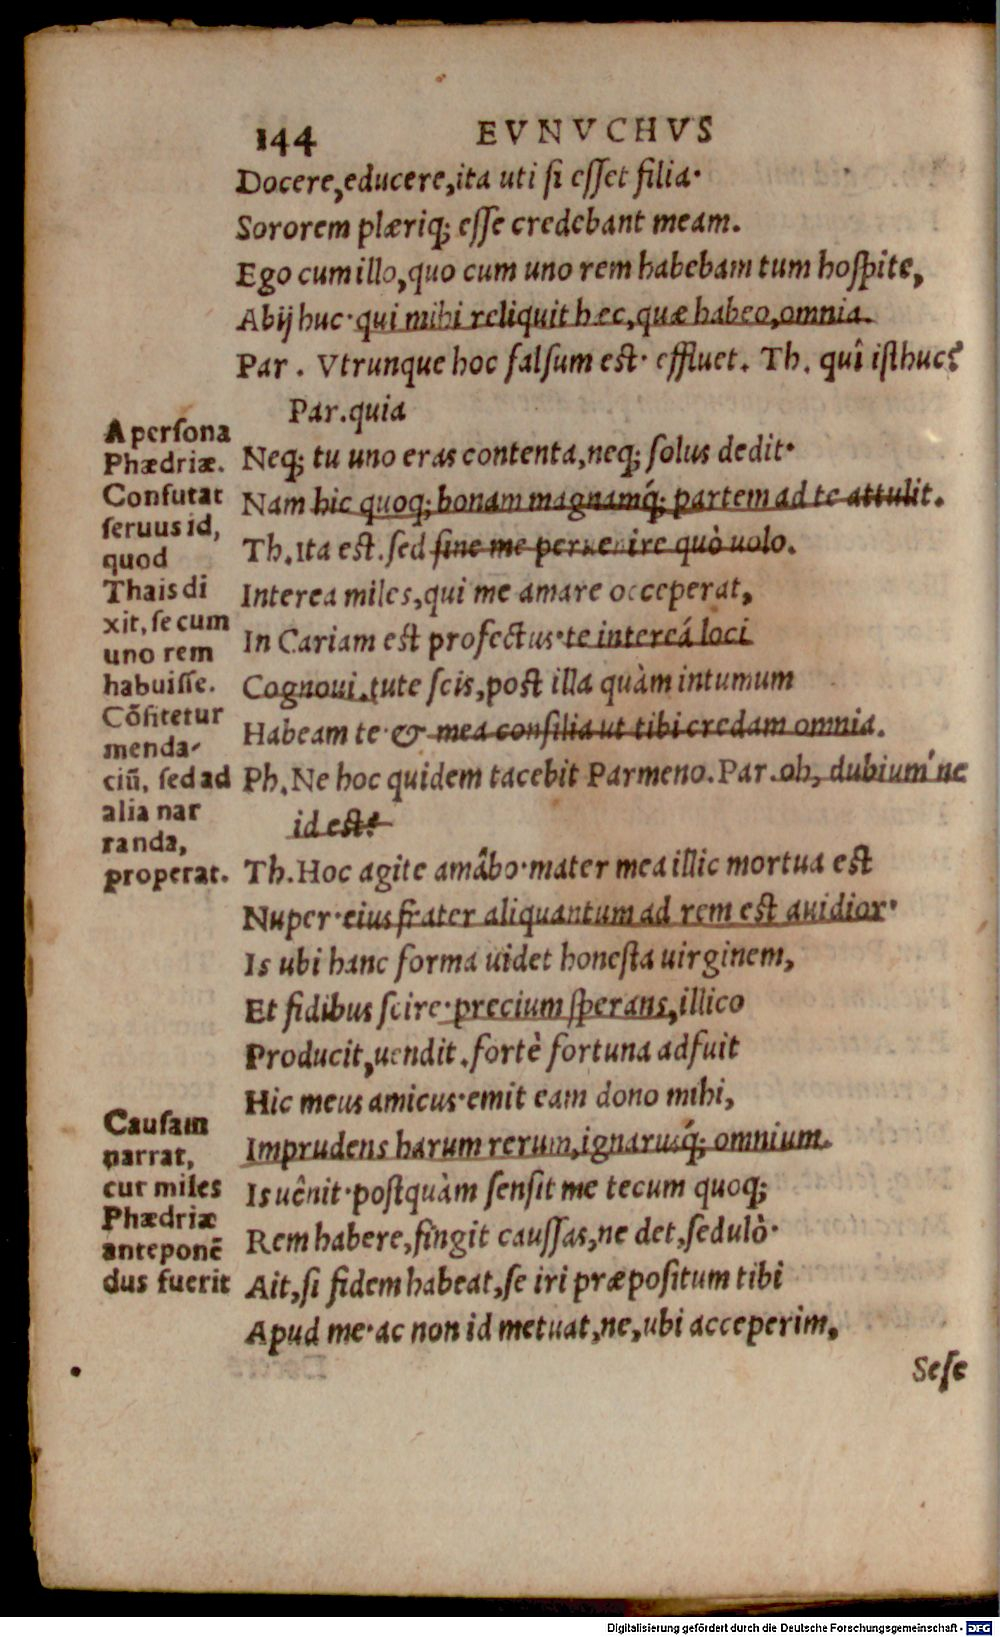 144 EVNVCHVS
Docere, educere, ita uti si esset filia·
Sororem plæriq; esse credebant meam.
Ego cum illo, quo cum uno rem habebam tum hospite,
Abij huc· qui mihi reliquit hæc, quæ habeo, omnia.
Par. Vtrunque hoc falsum est· effluet. Th. quî isthuc?
Par. quia
Neq; tu uno eras contenta, neq; solus dedit·
Nam hic quoq; bonam magnamq́; partem ad te attulit.
Th. Ita est. sed sine me peruenire quò uolo.
Interea miles, qui me amare occeperat,
In Cariam est profectus· te intereá loci
Cognoui. tute scis, post illa quàm intumum
Habeam te· & mea consilia ut tibi credam omnia.
Ph. Ne hoc quidem tacebit Parmeno. Par. oh, dubium'ne
id est?
Th. Hoc agite amâbo· mater mea illic mortua est
Nuper· eius frater aliquantum ad rem est auidior·
Is ubi hanc forma uidet honesta uirginem,
Et fidibus scire· precium sperans, illico
Producit, uendit. fortè fortuna adfuit
Hic meus amicus· emit eam dono mihi,
Imprudens harum rerum, ignarusq́; omnium.
Is uênit· postquàm sensit me tecum quoq;
Rem habere, fingit caussas, ne det, sedulò·
Ait, si fidem habeat, se iri præpositum tibi
Apud me· ac non id metuat, ne, ubi acceperim,
Sese
A persona
Phædriæ.
Confutat
seruus id,
quod
Thais di
xit, se cum
uno rem
habuisse.
Cõfitetur
menda-
ciũ, sed ad
alia nar
randa,
properat.
Causam
narrat,
cur miles
Phædriæ
anteponẽ
dus fuerit
Digitalisierung gefördert durch die Deutsche Forschungsgemeinschaft - DFG